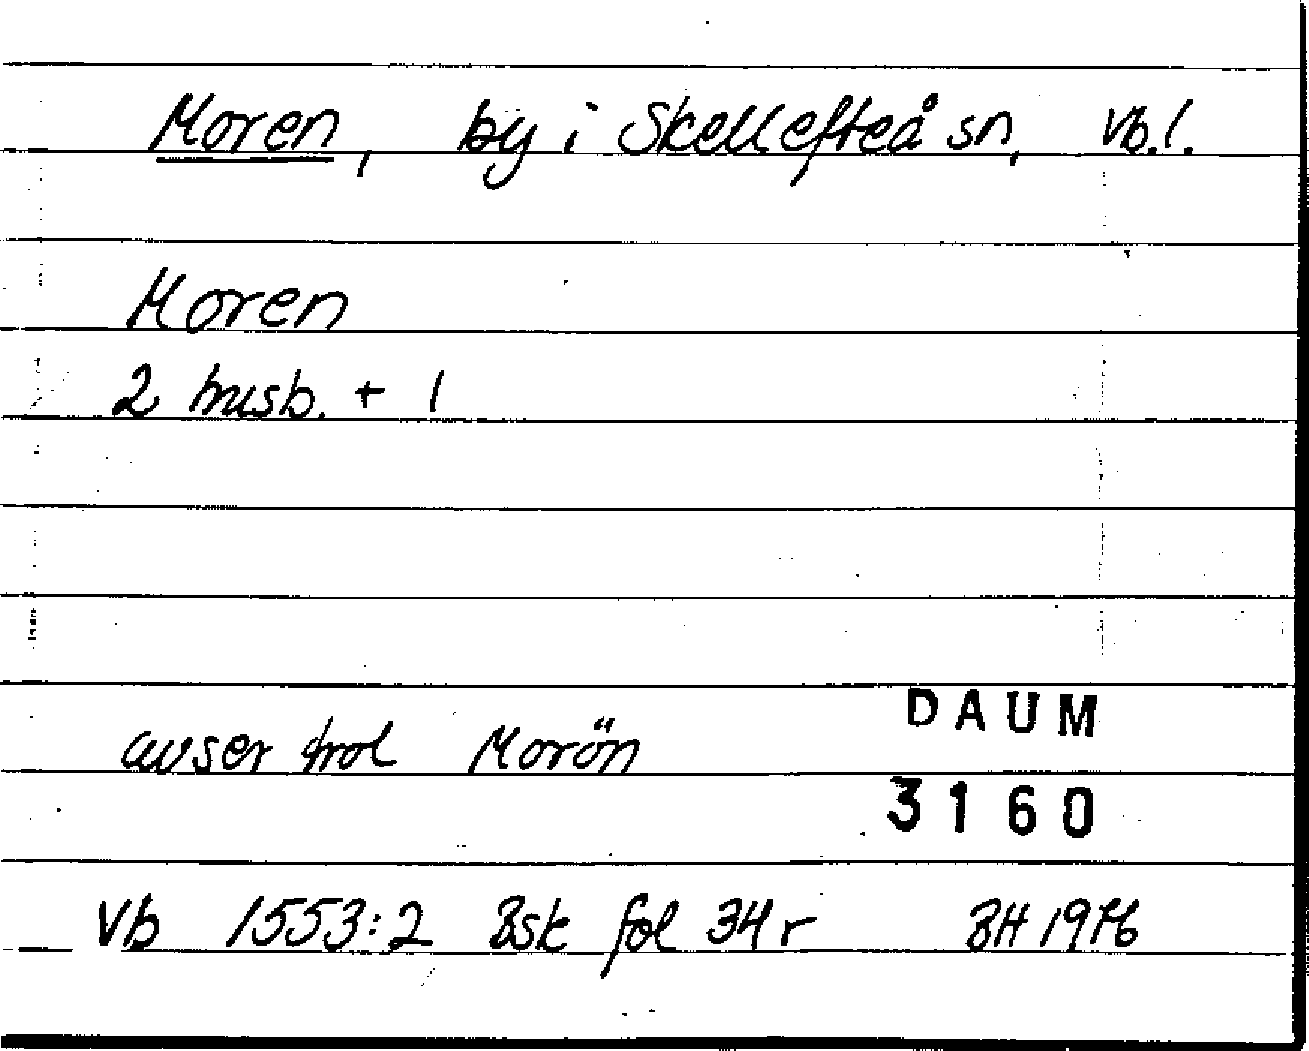 Moren, by i Skellefteå sn, Vb.l.
Moren
2 husb. + 1
avser trol Morön
DAUM
3160
Vb 1553:2 Bsk fol 34 r BH 1976